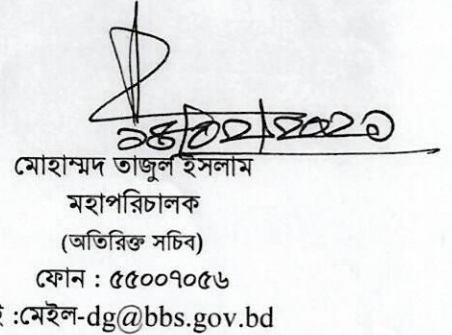 মোহাম্মদ তাজুল ইসলাম
মহাপরিচালক
(অতিরিক্ত সচিব)
ফোন : ৫৫০০৭০৫৬
ই :মেইল-dg@bbs.gov.bd